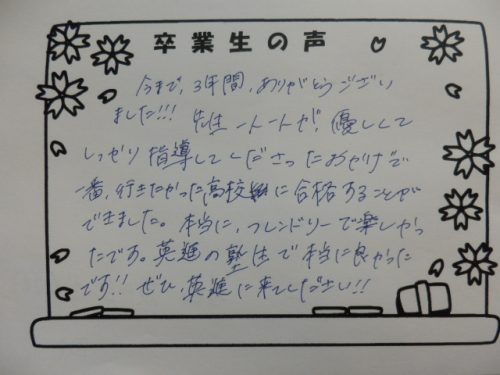 卒業生の声
今まで、3年間、ありがとうござい
ました!!! 先生一人一人が、優しくて
しっかり指導してくださったおかげで
一番、行きたかった高校に合格することが
できました。本当に、フレンドリーで楽しかっ
たです。英進の塾生で本当に良かった
です!! ぜひ、英進に来てください!!